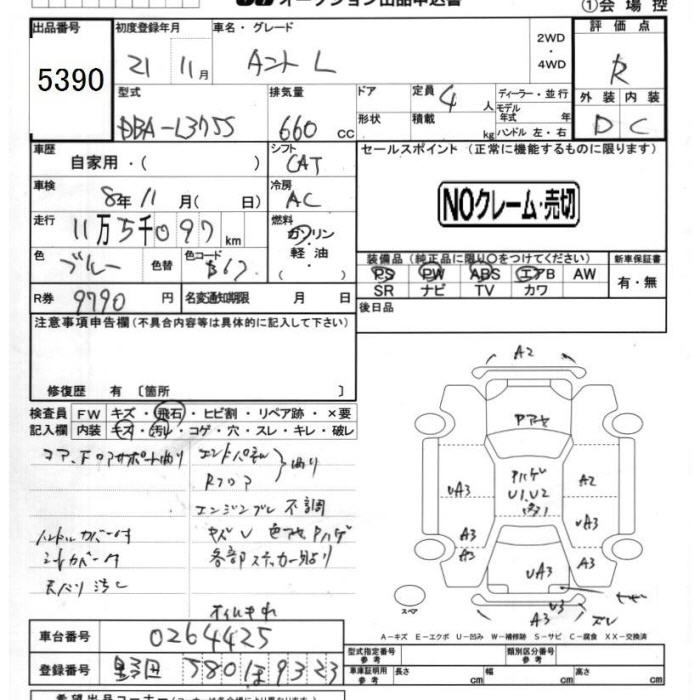 オークション出品申込書 ①会場控
出品番号 初度登録年月 車名・グレード 2WD ・ 4WD 評価点
5390 21 11月 タント L R
型式 排気量 ドア 定員 4人 ディーラー・並行 外装 内装
DBA-L375S 660cc 形状 積載 kg モデル年式 年 ハンドル 左・右 D C
車歴 自家用・( ) シフト CAT セールスポイント (正常に機能するものに限ります)
車検 8年11月( 日) 冷房 AC NOクレーム・売切
走行 11万5千097km 燃料 ガソリン・軽油・( )
色 ブルー 色替 色コード B67 装備品(純正品に限り○をつけてください) 新車保証書
PS PW ABS エアB AW 有・無
SR ナビ TV カワ
R券 9790円 名変通知期限 月 日 後日品
注意事項申告欄(不具合内容等は具体的に記入して下さい)
修復歴 有 〔箇所 〕
検査員 FW キズ・飛石・ヒビ割・リペア跡・×要
記入欄 内装 キズ・汚レ・コゲ・穴・スレ・キレ・破レ
コアサポート曲り エンドパネル
Rフロア 曲り
エンジンブレ 不調
ハンドルカバー付 キズU 色アセ Pハゲ
シートカバー付 各部ステッカー貼り
天バリ汚レ
オイルキれ
A2
Pアセ
UA3 Pハゲ A2
U1、U2
A3 UA3
A3 A3
UA3
スペア U3
A3 ズレ
A-キズ E-エクボ U-凹み W-補修跡 S-サビ C-腐食 XX-交換済
車台番号 0264425
型式指定番号 参考 類別区分番号 参考
登録番号 野田 580 ほ 9323 車庫証明用 参考 長さ 幅 高さ
希望出品コーナー